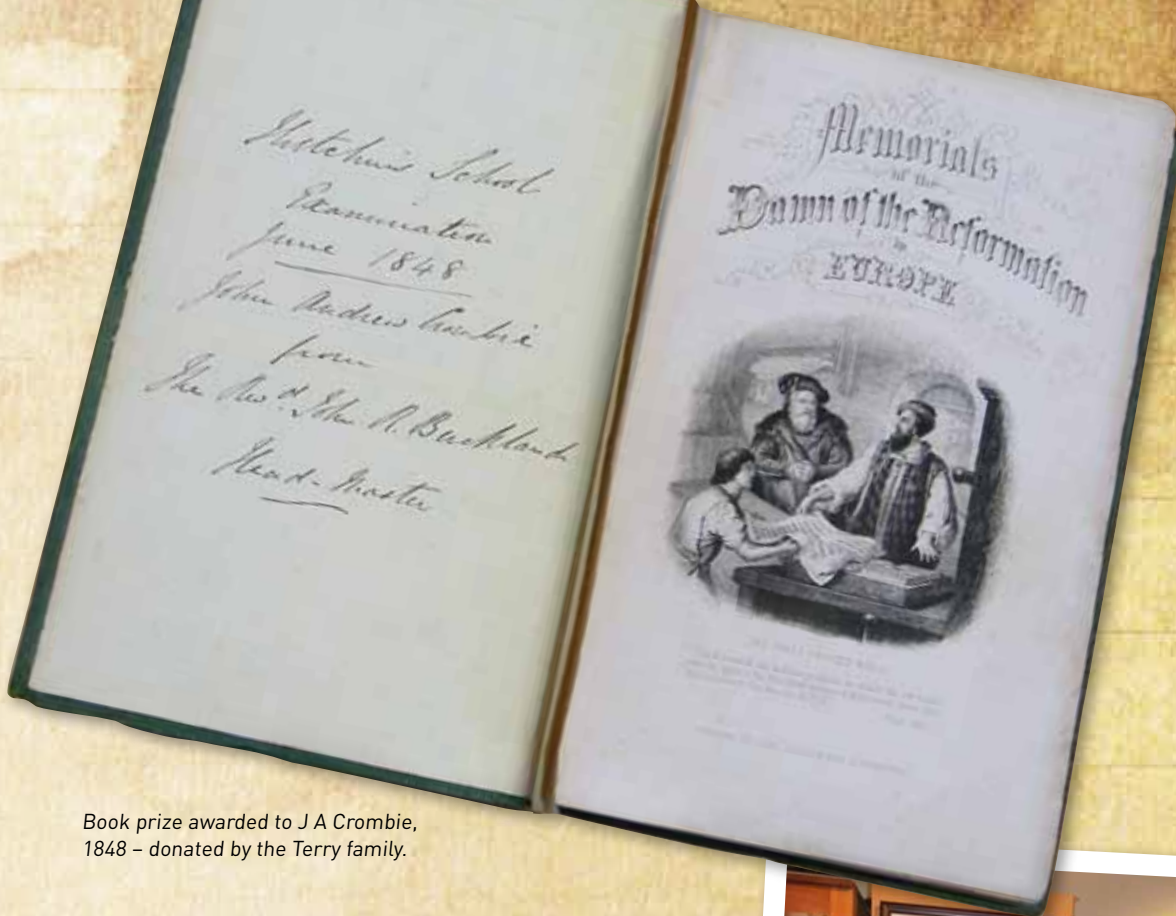 Hutchins School
Examination
June 1848
John Andrew Crombie
from
The Revd. John R. Buckland
Head-Master
Memorials
of the
Dawn of the Reformation
in
EUROPE
Book prize awarded to J A Crombie,
1848 – donated by the Terry family.